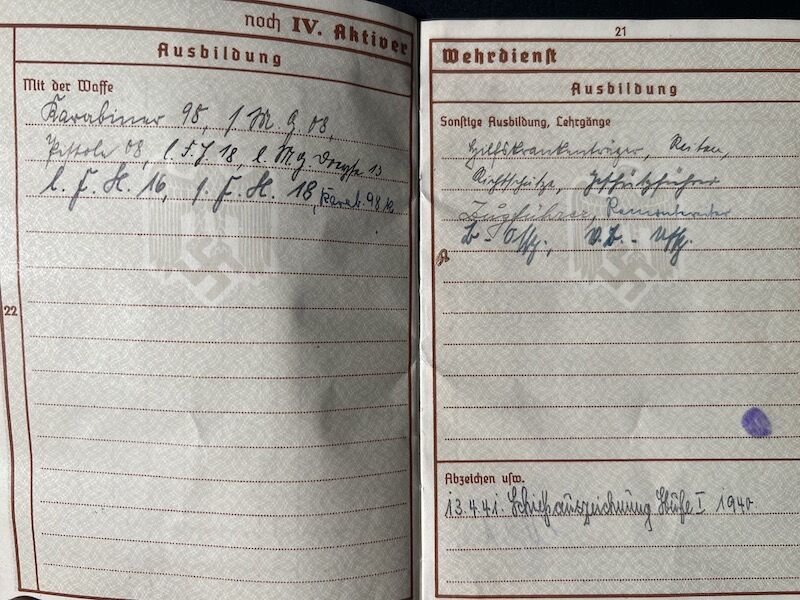 noch IV. Aktiver
Ausbildung
Mit der Waffe
Karabiner 98, s. M. G. 08,
Pistole 08, l. F. H. 18, l. M G Dreyse 13
l. F. H. 16, s. F. H. 18, Karab. 98 k
22
21
Wehrdienst
Ausbildung
Sonstige Ausbildung, Lehrgänge
Hilfskrankenträger, Reiten,
Richtschütze, Geschützführer
Zugführer, Remontereiter
B-Offz., V.B.-Uffz.
Abzeichen usw.
13.4.41. Schießauszeichnung Stufe I 1940